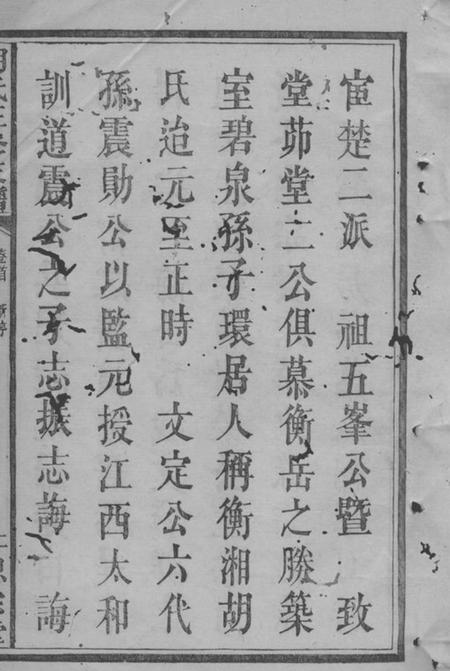 宦楚二派　祖五峯公暨　致
堂茆堂二公俱慕衡岳之勝築
室碧泉孫子環居人稱衡湘胡
氏迨元至正時　文定公六代
孫震勛公以監元授江西太和
訓道震公之子志振志誨　誨